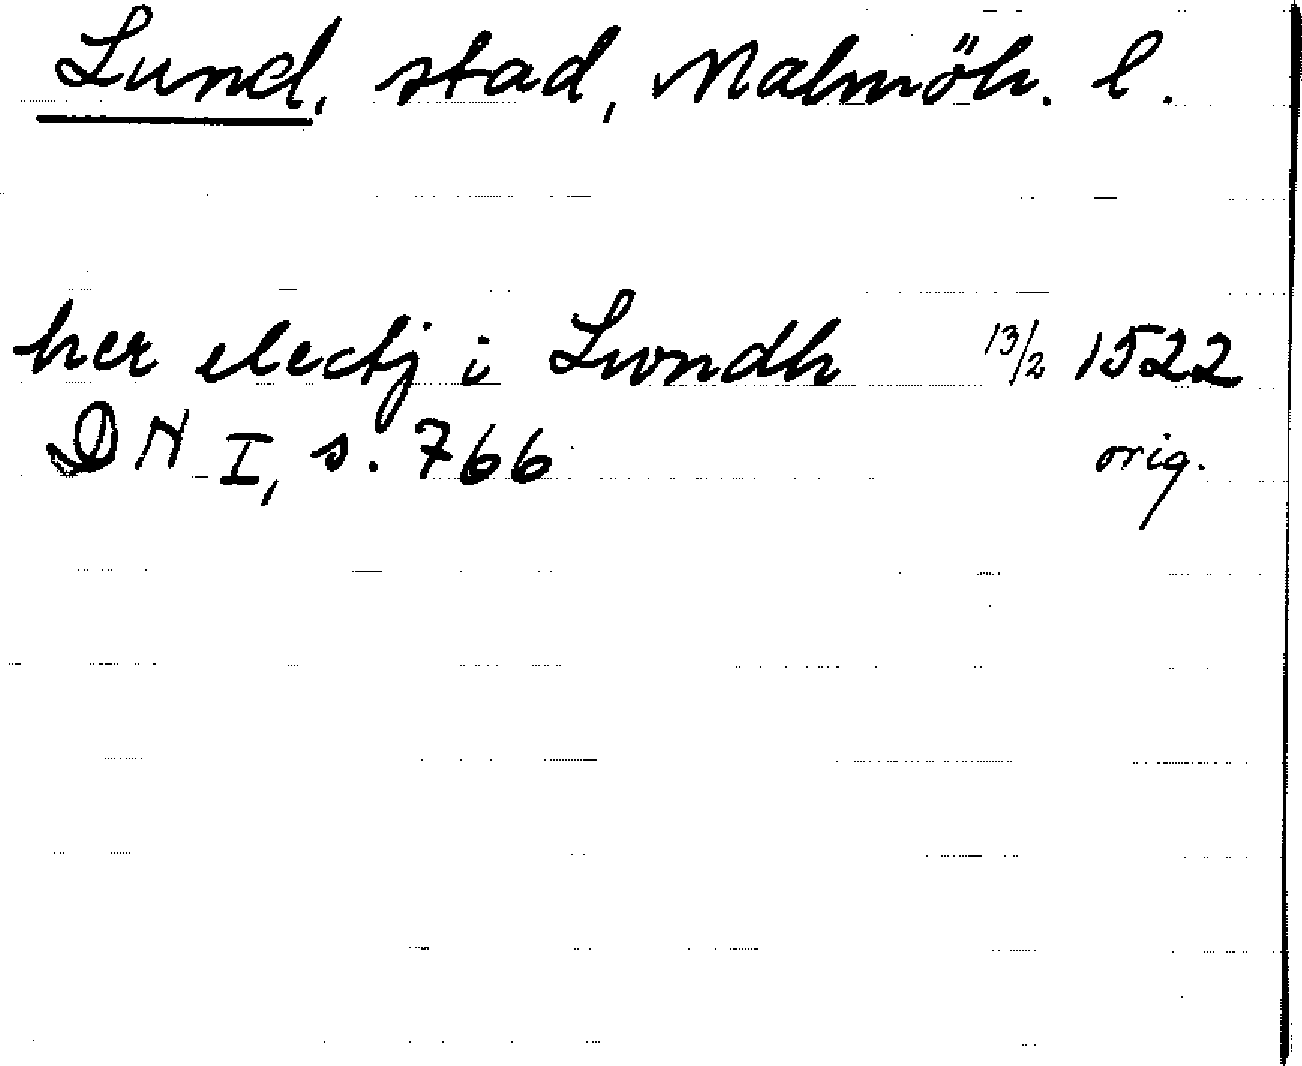 Lund, stad, Malmöh. l.
her electj i Lwndh 13/2 1522
DN I, s. 766 orig.